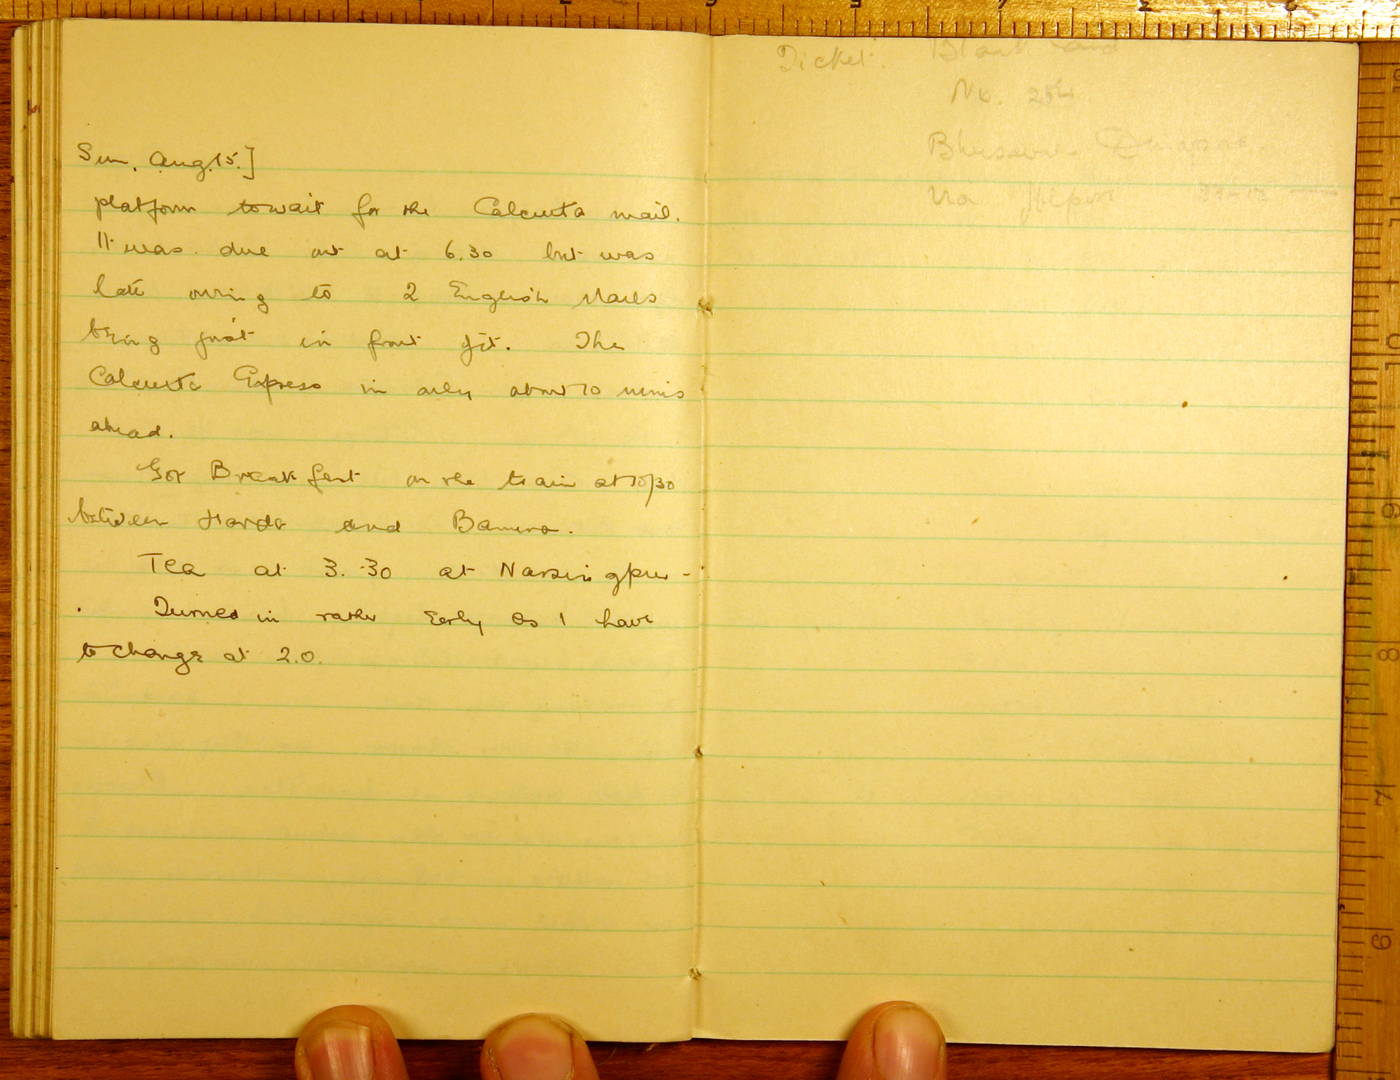 Sun. Aug. 15.]
platform to wait for the Calcutta mail.
It was due out at 6.30 but was
late owing to 2 English Mails
being just in front of it. The
Calcutta Express in only about 10 mins
ahead.
Got Breakfast on the train at 10/30
between Harda and
Tea at 3.30 at Narsingpur-
Turned in rather Early as I have
to change at 2.0.
Ticket. Blank Card
No.
Bhusawal
Via